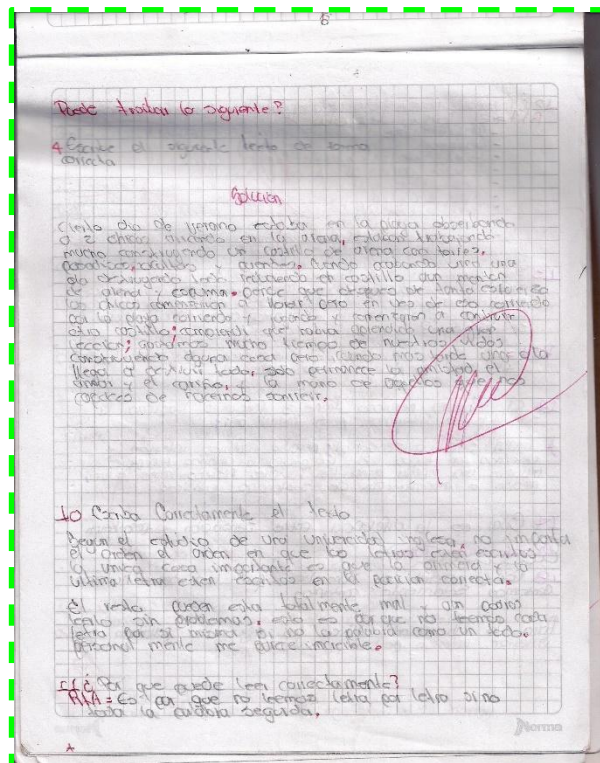 6
Puede traducir lo siguiente?
4 Escribe el siguiente texto de forma
correcta
Solución
Cierto dia de verano estaba en la playa observando
a 2 chicos en la arena, estaban trabajando
mucho construyendo un castillo de arena con torres,
y puentes. Cuando acabando vino una
ola destruyendo todo, reduciendo el castillo a un monton
de arena y espuma. Pense que despues de tanto esfuerzo
los chicos comenzarian a llorar, pero en vez de eso corriendo
por la playa riendo y y comenzaron a construir
otro castillo; comprendi que habia aprendido una gran
leccion; gastamos mucho tiempo de nuestras vidas
construyendo alguna cosa pero cuando mas tarde una ola
llega a destruir todo, solo permanece la amistad, el
amor y el cariño, y la mano de aquellos que son
capaces de hacernos sonreir.
10 Escriba Correctamente el texto
Segun el estudio de una universidad inglesa, no importa
el orden el orden en que las letras estan escritas
la unica cosa importante es que la primera y la
ultima letra esten escritas en la posicion correcta.
El resto pueden esta totalmente mal y aun podras
leerlo sin problemas, esto es por que no leemos cada
letra por si misma si no la palabra como un todo.
personal mente me parece increible.
¿Por que puede leer correctamente?
RTA = Es por que no leemos letra por letra sino
toda la palabra seguida.
Norma